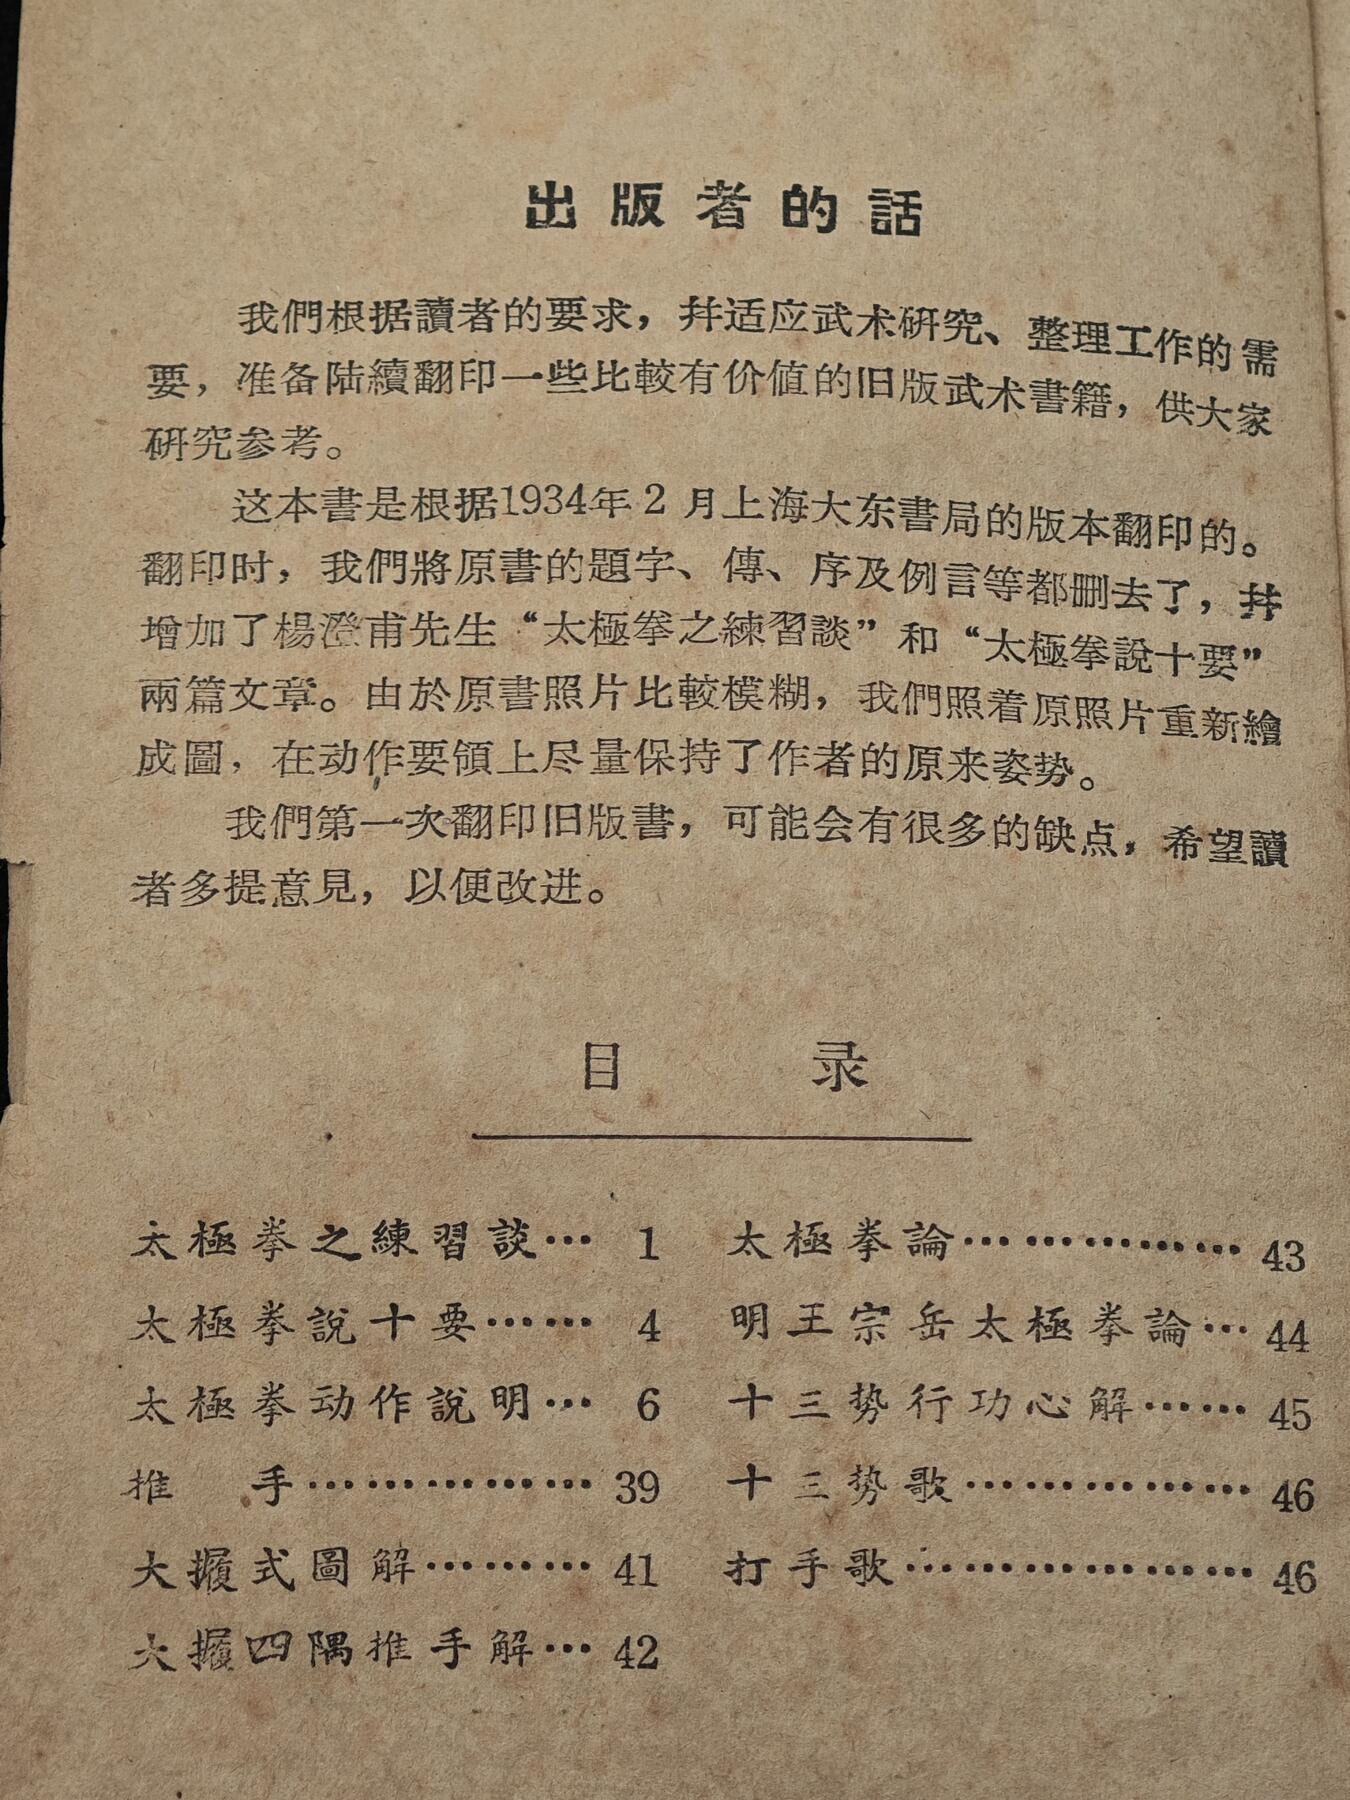 出版者的話
我們根据讀者的要求，幷适应武术研究、整理工作的需
要，准备陆續翻印一些比較有价值的旧版武术書籍，供大家
研究参考。
这本書是根据1934年2月上海大东書局的版本翻印的。
翻印时，我們將原書的題字、傳、序及例言等都删去了，幷
增加了楊澄甫先生“太極拳之練習談”和“太極拳說十要”
兩篇文章。由於原書照片比較模糊，我們照着原照片重新繪
成圖，在动作要領上尽量保持了作者的原来姿势。
我們第一次翻印旧版書，可能会有很多的缺点，希望讀
者多提意見，以便改进。
目录
太極拳之練習談… 1
太極拳說十要…… 4
太極拳动作說明… 6
推手…………… 39
大擨式圖解……… 41
大擨四隅推手解… 42
太極拳論…………… 43
明王宗岳太極拳論… 44
十三势行功心解…… 45
十三势歌…………… 46
打手歌……………… 46